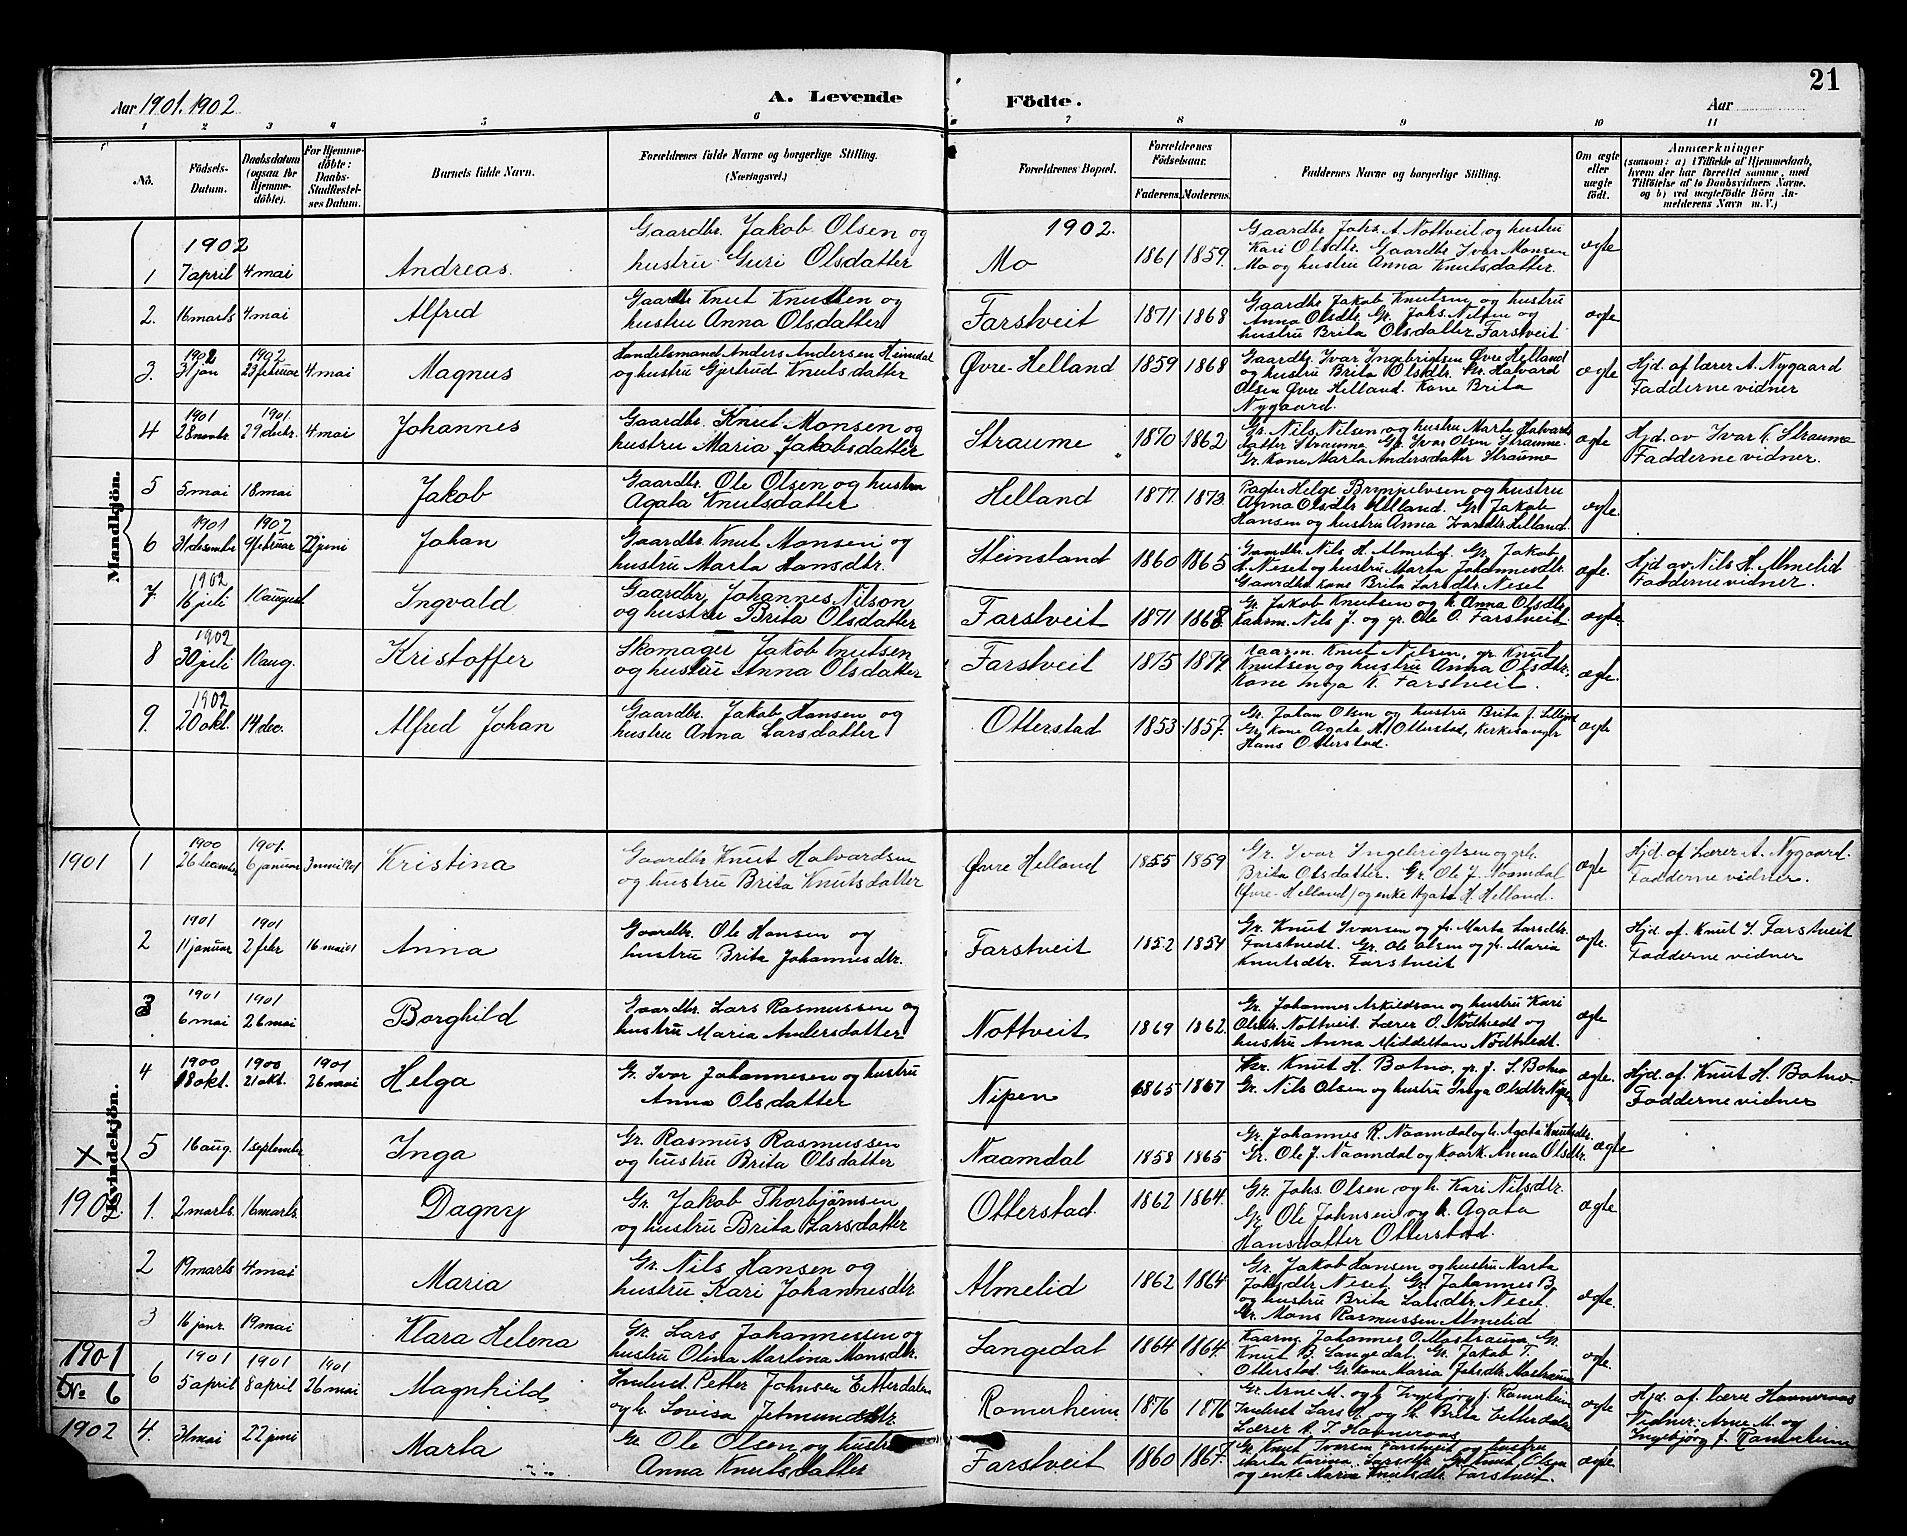 21
Aar 1901. 1902
A. Levende Födte.
Aar
1 2 3 4 5 6 7 8 9 10 11
No.
Födsels-Datum.
Daabsdatum (ogsaa for Hjemmedöbte).
For Hjemmedöbte: Daabs-Stadfestelses Datum.
Barnets fulde Navn.
Forældrenes fulde Navne og borgerlige Stilling. (Næringsvei.)
Forældrenes Bopæl.
Forældrenes Födselsaar.
Faderens. Moderens.
Faddernes Navne og borgerlige Stilling.
Om ægte eller uægte födt.
Anmærkninger
(saasom: a) i Tilfælde af Hjemmedaab, hvem der har forrettet samme, med Tilföielse af to Daabsvidners Navne, og b) ved uegtefödte Börn Anmelderens Navn m. V.)
Mandkjön.
1902
1902.
1 7 april 4 mai Andreas. Gaardbr. Jakob Olsen og
hustru Guri Olsdatter Mo 1861 1859. Gaardbr Johs A. Nottveit og hustru
Kari Olsdtr. Gaardbr Ivar Monsen
Mo og hustru Anna Knutsdatter. ægte
2. 16 marts 4 mai Alfred Gaardbr Knut Knutsen og
hustru Anna Olsdatter Farstveit 1871 1868 Gaardbr Jakob Knutsen og hustru
Anna Olsdtr. Gr. Johs Nilsen og
hustru Brita Olsdatter Farstveit ægte
3. 1902 31 jan 1902 23 februar 4 mai Magnus Handelsmand Anders Andersen Heimdal
og hustru Gjertrud Knutsdatter Øvre-Helland 1859 1868 Gaardbr. Ivar Ingebrigtsen Øvre Helland
og hustru Brita Olsdtr. Gr. Halvard
Olsen Øvre Helland. Kone Brita
Nygaard. ægte Hjd. af lærer A. Nygaard
Fadderne vidner
4 1901 28 novbr. 1901. 29 decbr. 4 mai Johannes Gaardbr. Knut Monsen og
hustru Maria Jakobsdatter Straume 1870 1862 Gr. Nils Nilsen og hustru Marta Halvards
datter Straume. Gr. Ivar Olsen Straume.
Gr. Kone Marta Andersdatter Straume ægte Hjd. av Ivar Straume
Fadderne vidner.
5 5 mai 18 mai Jakob Gaardbr. Ole Olsen og hustru
Agata Knutsdatter Helland 1877 1873. Helge Brynjelvsen og hustru
Anna Olsdtr Helland. Gr. Jakob
Hansen og hustru Anna Ivarsdtr. Helland. ægte.
6 1901 31 desember 1902 9 februar 22 juni Johan Gaardbr. Knut Monsen og
hustru Marta Hansdtr. Steinsland 1860 1865 Gaardbr Nils H. Almelid. Gr. Jakob
H. Neset og hustru Marta Johannesdtr
Gaardbr kone Brita Larsdtr. Neset ægte. Hjd av Nils H. Almelid
Fadderne vidner.
7 1902 16 juli 10 august Ingvald Gaardbr. Johannes Nilson
og hustru Brita Olsdatter Farstveit 1871 1868. Gr. Jakob Knutsen og h. Anna Olsdtr.
Nils J. og gr. Ole O. Farstveit. ægte.
8 1902 30 juli 10 aug. Kristoffer Skomager Jakob Knutsen
og hustru Anna Olsdatter Farstveit 1875 1879. Knut Nilsen, gr. Knut
Knutsen og hustru Anna Olsdtr.
Kone Inga K. Farstveit. ægte.
9. 1902 20 okt. 14 dec. Alfred Johan Gaardbr. Jakob Hansen og
hustru Anna Larsdatter Otterstad 1853 1857. Gr. Johan Olsen og hustru Brita J.
Gr. Kone Agata A. Otterstad, Kerkesanger
Hans Otterstad. ægte
Kvindekjön.
1901 1 1900 26 december 1901. 6 januar 3 mai 1901 Kristina Gaardbr Knut Halvardsen
og hustru Brita Knutsdatter Øvre Helland 1855 1859 Gr. Ivar Ingebrigtsen og
Brita Olsdatter. Gr. Ole J. Naamdal
Øvre-Helland og enke Agata H. Helland. ægte Hjd. af Lærer A. Nygaard.
Fadderne vidner.
2 1901 11 januar 1901 2 febr 16 mai 01 Anna Gaardbr. Ole Hansen og
hustru Brita Johannesdtr. Farstveit 1852 1854 Gr. Knut Ivarsen og h. Marta Larsdtr.
Farstvedt. Gr. Ole Olsen og h. Maria
Knutsdtr. Farstveit ægte Hjd. af. Knut I. Farstveit
Fadderne vidner
3 1901 6 mai 1901 26 mai Borghild Gaardbr. Lars Rasmussen og
hustru Maria Andersdatter Nottveit 1869 1862. Gr. Johannes Askildson og hustru Kari
Olsdtr. Nottveit. Lærer O. Nodtvedt og
hustru Anna Middelton Nodtvedt. ægte
4 1900 18 okt. 1900 21 okt. 1901 26 mai Helga Gr. Ivar Johannesen og hustru
Anna Olsdatter Nipen 1865 1867 Knut H. Botno, gr. J. S. Botno
Gr. Nils Olsen og hustru Inga Olsdtr. Nipen ægte. Hjd. af. Knut H. Botno.
Fadderne vidner
X 5 16 aug. 1 september Inga Gr. Rasmus Rasmussen
og hustru Brita Olsdatter Naamdal 1858 1865 Gr. Johannes R. Naamdal og h. Agata Knutsdtr.
Gr. Ole J. Naamdal og Anna Olsdtr. ægte
1902 1. 2 marts. 16 marts. Dagny Gr. Jakob Thorbjørnsen
og hustru Brita Larsdatter Otterstad. 1862 1864. Gr. Johs. Olsen og h. Kari Nilsdtr.
Gr. Ole Johnsen og h. Agata
Hansdatter Otterstad. ægte
2 19 marts 4 mai Maria Gr. Nils Hansen og
hustru Kari Johannesdtr Almelid 1862 1864. Gr. Jakob Hansen og hustru Marta
Johsdtr Neset. Gr. Johannes B.
og hustru Brita Larsdtr. Neset.
Gr. Mons Rasmussen Almelid ægte.
3 16 janr. 19 mai Klara Helena Gr. Lars Johannessen og
hustru Olina Martina Monsdtr. Langedal 1864 1864. Johannes O. Mostraum, Gr.
Knut B. Langedal, Gr. Jakob T.
Otterstad. Gr. kone Maria Johsdtr. Mostraum ægte.
1901 No 6 6 1901 5 april 1901 8 april 1901 26 mai Magnhild Inderst. Petter Johnsen Eitterdalen
og h. Lovisa Jetmundsdtr Ramerheim 1876 1876 Gr. Arne M. og h. Ingebjørg J. Ramerheim
Inderst Lars og h. Brita Eitterdalen
Lærer Havneraas ægte Hjd. af. lærer Havneraas
Vidner: Arne M. og
Ingebjørg J. Ramerheim
1902 4. 31 mai 22 juni Marta Gr. Ole Olsen og hustru
Anna Knutsdatter Farstveit 1860 1867. Gr. Knut Iversen Farstveit og hustru
Marta Karina Larsdtr. Gr. Knut Olsen
og enke Maria Knutsdtr. Farstveit. ægte